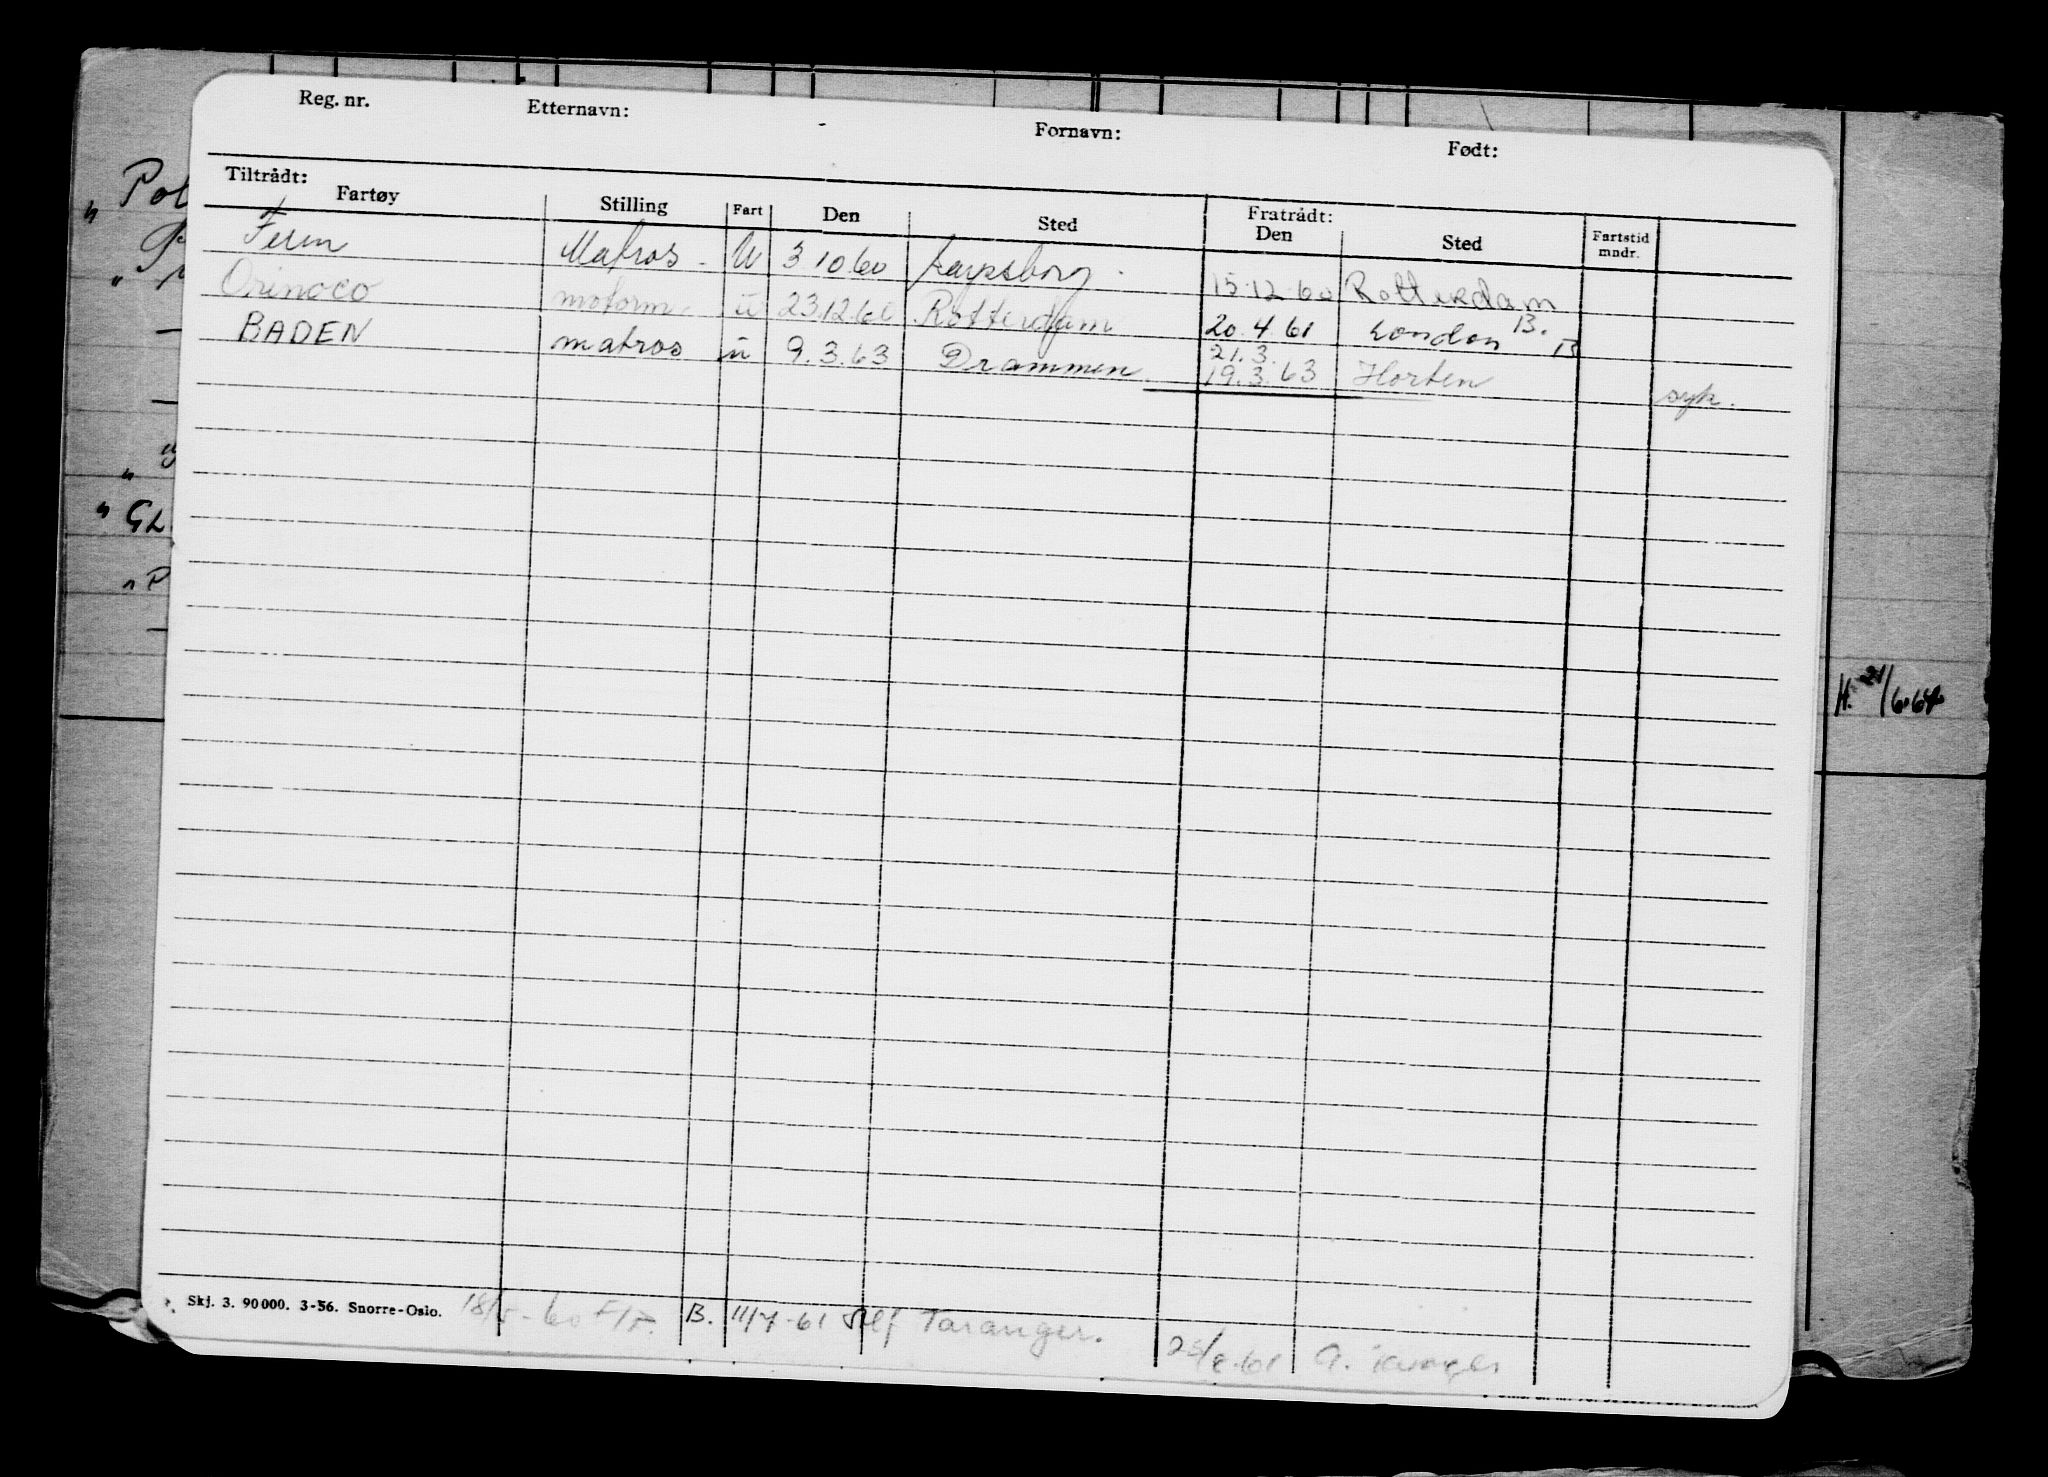 Reg. nr. Etternavn: Fornavn: Født:
Tiltrådt: Fratrådt:
Fartøy Stilling Fart Den Sted Den Sted Fartstid mndr.
Matros - U 3.10.60 15.12.60 Rotterdam
Orinoco motorm. u 23.12.60 Rotterdam 20.4.61 London B.
21.3. B
BADEN matros u 9.3.63 Drammen 19.3.63 Horten syk.
" Pol
"
"
" GL
" P
H. 21/6.64
Skj. 3. 90000. 3-56. Snorre-Oslo. 18/5-60 B. 11/7-61 Alf Taranger.